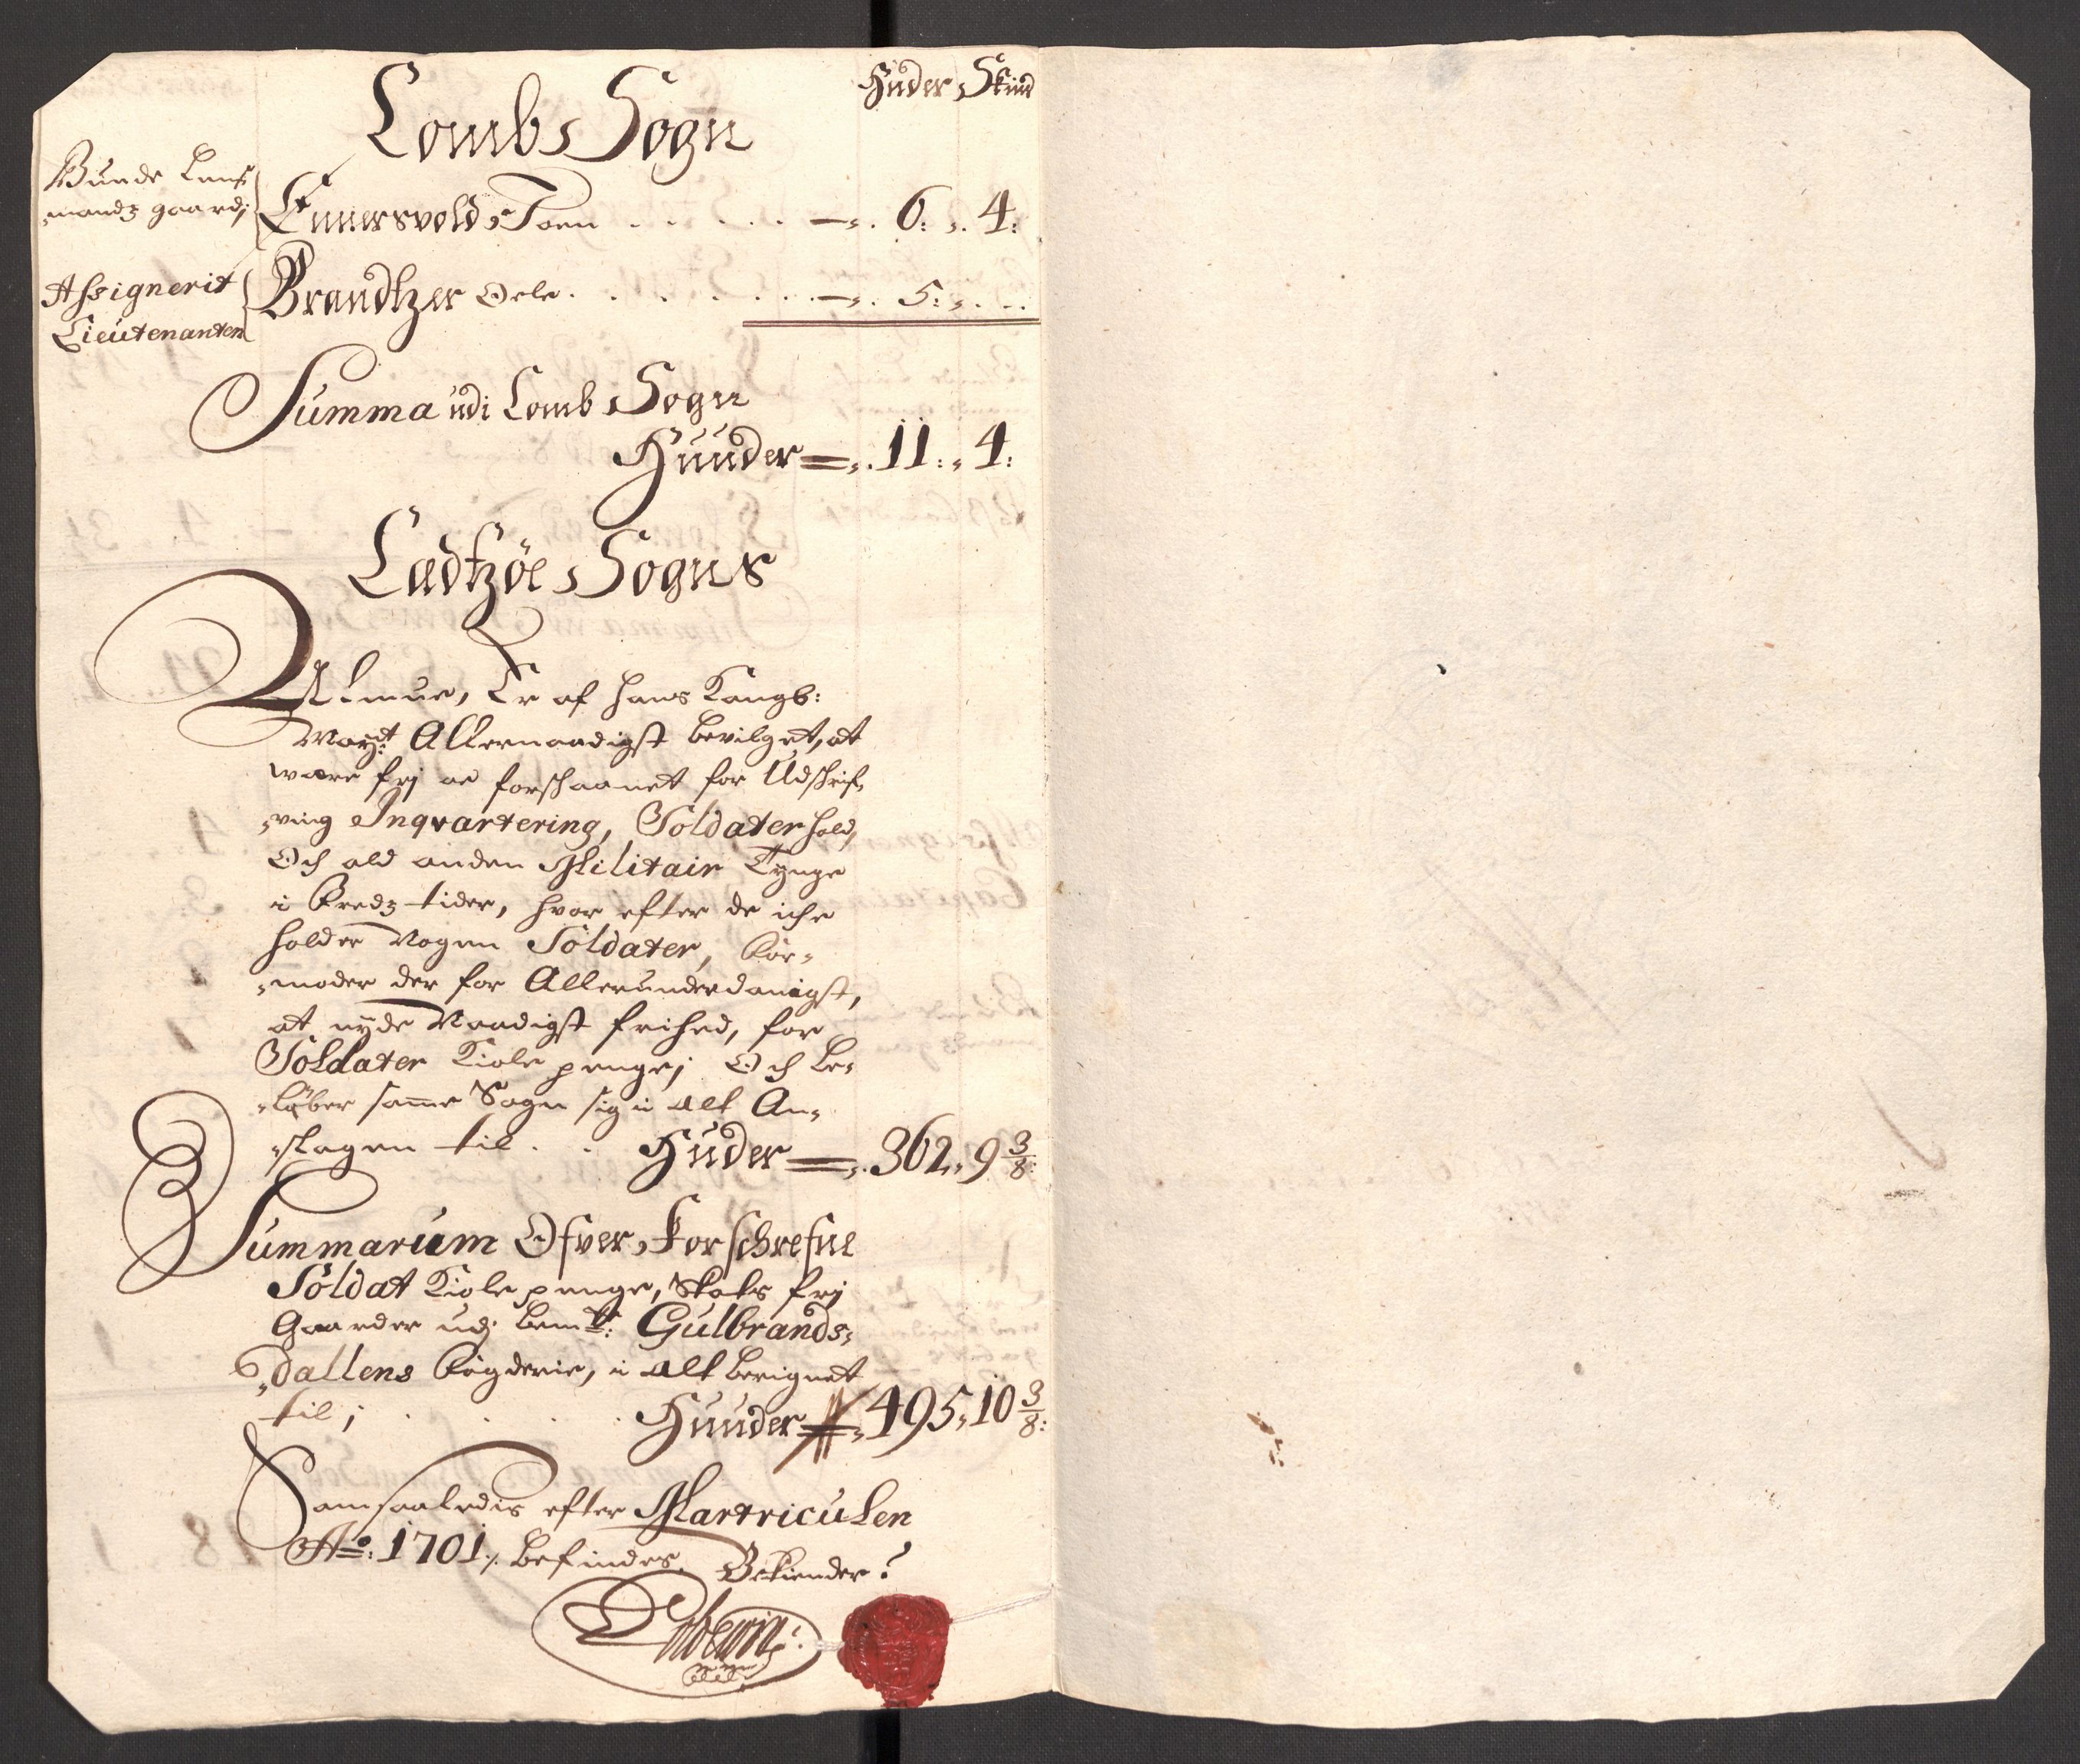 Huder Skind
Lombs Sogn
Bunde Lens
mandz gaard;
Ennersvolds Toen . . . . . . 6: 4:
Assignerit
Lieutenanten
Brandtzer Oele . . . . . . . 5: . . .
Summa udi Lomb Sogn
Huuder = 11: 4:
Ladtzøe Sogns
Allmue, Er af Hans Kongb:
Mayt: Allernaadigst bevilget, at
were frj oc forschaanet for Udschrif,
,ving Inqvartering, Soldater hold,
Och ald anden Militair Tynge
i Fredz tider, hvor efter de iche
holder Nogen Soldater, For,
,moder der for Allerunderdanigst,
at nyde Naadigst frihed, for
Soldater Kiole penge; Och be,
,løber samme Sogn sig i alt An,
,slagen til . . Huder = 362, 9 3/8:
Summarum Ofver Forschrefne
Soldat Kiole penge, Skats frj
Gaarder udj bemte: Gulbrands,
,dallens Fogderie, i alt beregnet
til; . . . . Huuder = 495, 10 3/8:
Samsaaledis efter Martriculen
Ao: 1701 befindes, Bekiender?